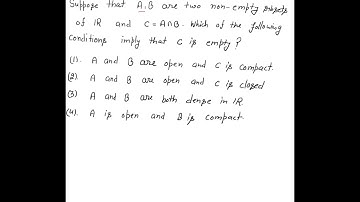 Suppose that A,B are two non-empty subsets
of IR and C = A∩B. Which of the following
conditions imply that C is empty?
(1). A and B are open and C is compact.
(2). A and B are open and C is closed
(3) A and B are both dense in IR.
(4). A is open and B is compact.